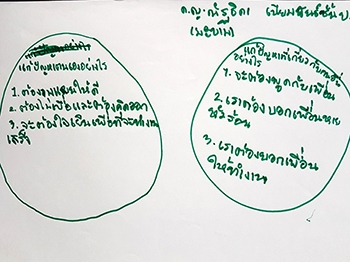 ด.ญ.ณัฐธิดา
(มะขาม)
แก้ปัญหาตนเองอย่างไร
1. ต้องวางแผนให้ดี
2. ต้องไม่เพื่อและต้องคิดออก
3. จะต้องใจเย็นเพื่อที่จะทำงาน
เสร็จ
แก้ปัญหาที่เกี่ยวกับคนอื่น
อย่างไร
1. จะต้องพูดกับเพื่อน
2. เราต้องบอกเพื่อนหาย
ใจร้อน
3. เราต้องบอกเพื่อน
ให้ทำงาน